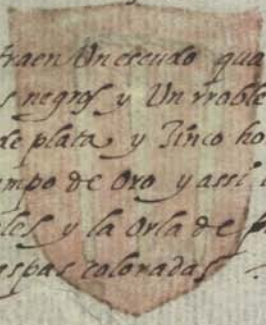 traen Un escudo qua
s negros y Un rroble
de plata y Zinco ho
mpo de oro y assi
les y la orla de p
aspas coloradas